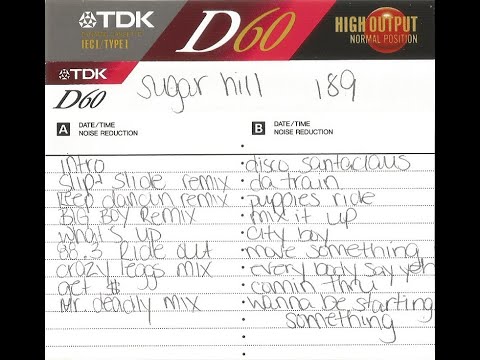 TDK
IEC I / TYPE I
D60
HIGH OUTPUT
NORMAL POSITION
TDK
D60
sugar hill 189
A DATE/TIME
NOISE REDUCTION
B DATE/TIME
NOISE REDUCTION
intro
slip slide remix
keep dancin remix
BIG BOY Remix
what's up
88.3 Ride out
crazy leggs mix
get $
Mr. deadly mix
disco santaclaus
da train
puppies ride
mix it up
city boy
move something
every body say yeh
camin thru
wanna be starting
something